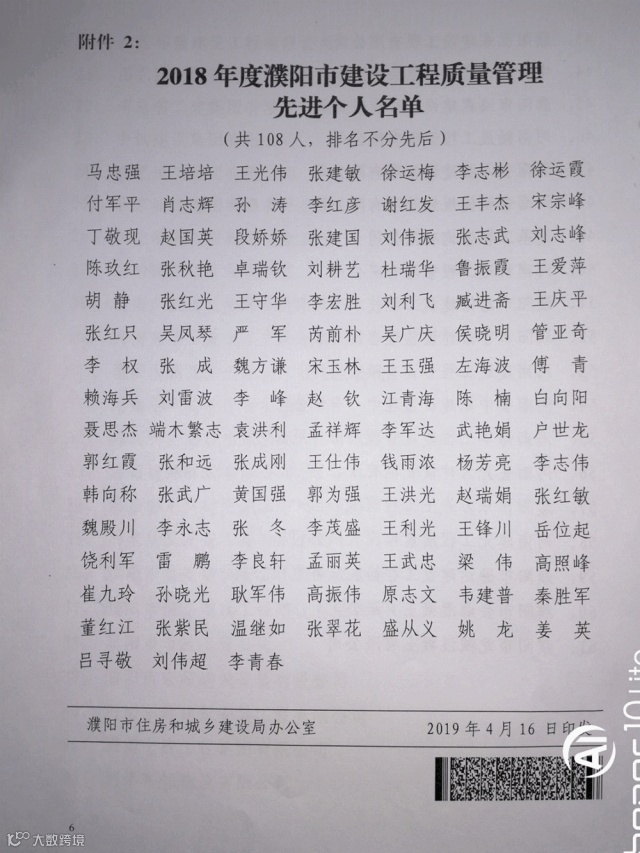 附件 2：
2018 年度濮阳市建设工程质量管理
先进个人名单
（共 108 人，排名不分先后）
马忠强 王培培 王光伟 张建敏 徐运梅 李志彬 徐运霞
付军平 肖志辉 孙 涛 李红彦 谢红发 王丰杰 宋宗峰
丁敬现 赵国英 段娇娇 张建国 刘伟振 张志武 刘志峰
陈玖红 张秋艳 卓瑞钦 刘耕艺 杜瑞华 鲁振霞 王爱萍
胡 静 张红光 王守华 李宏胜 刘利飞 臧进斋 王庆平
张红只 吴凤琴 严 军 芮前朴 吴广庆 侯晓明 管亚奇
李 权 张 成 魏方谦 宋玉林 王玉强 左海波 傅 青
赖海兵 刘雷波 李 峰 赵 钦 江青海 陈 楠 白向阳
聂思杰 端木繁志 袁洪利 孟祥辉 李军达 武艳娟 户世龙
郭红霞 张和远 张成刚 王仕伟 钱雨浓 杨芳亮 李志伟
韩向称 张武广 黄国强 郭为强 王洪光 赵瑞娟 张红敏
魏殿川 李永志 张 冬 李茂盛 王利光 王锋川 岳位起
饶利军 雷 鹏 李良轩 孟丽英 王武忠 梁 伟 高照峰
崔九玲 孙晓光 耿军伟 高振伟 原志文 韦建普 秦胜军
董红江 张紫民 温继如 张翠花 盛从义 姚 龙 姜 英
吕寻敬 刘伟超 李青春
濮阳市住房和城乡建设局办公室 2019 年 4 月 16 日印发
AI
10 Lite
6
大数跨境